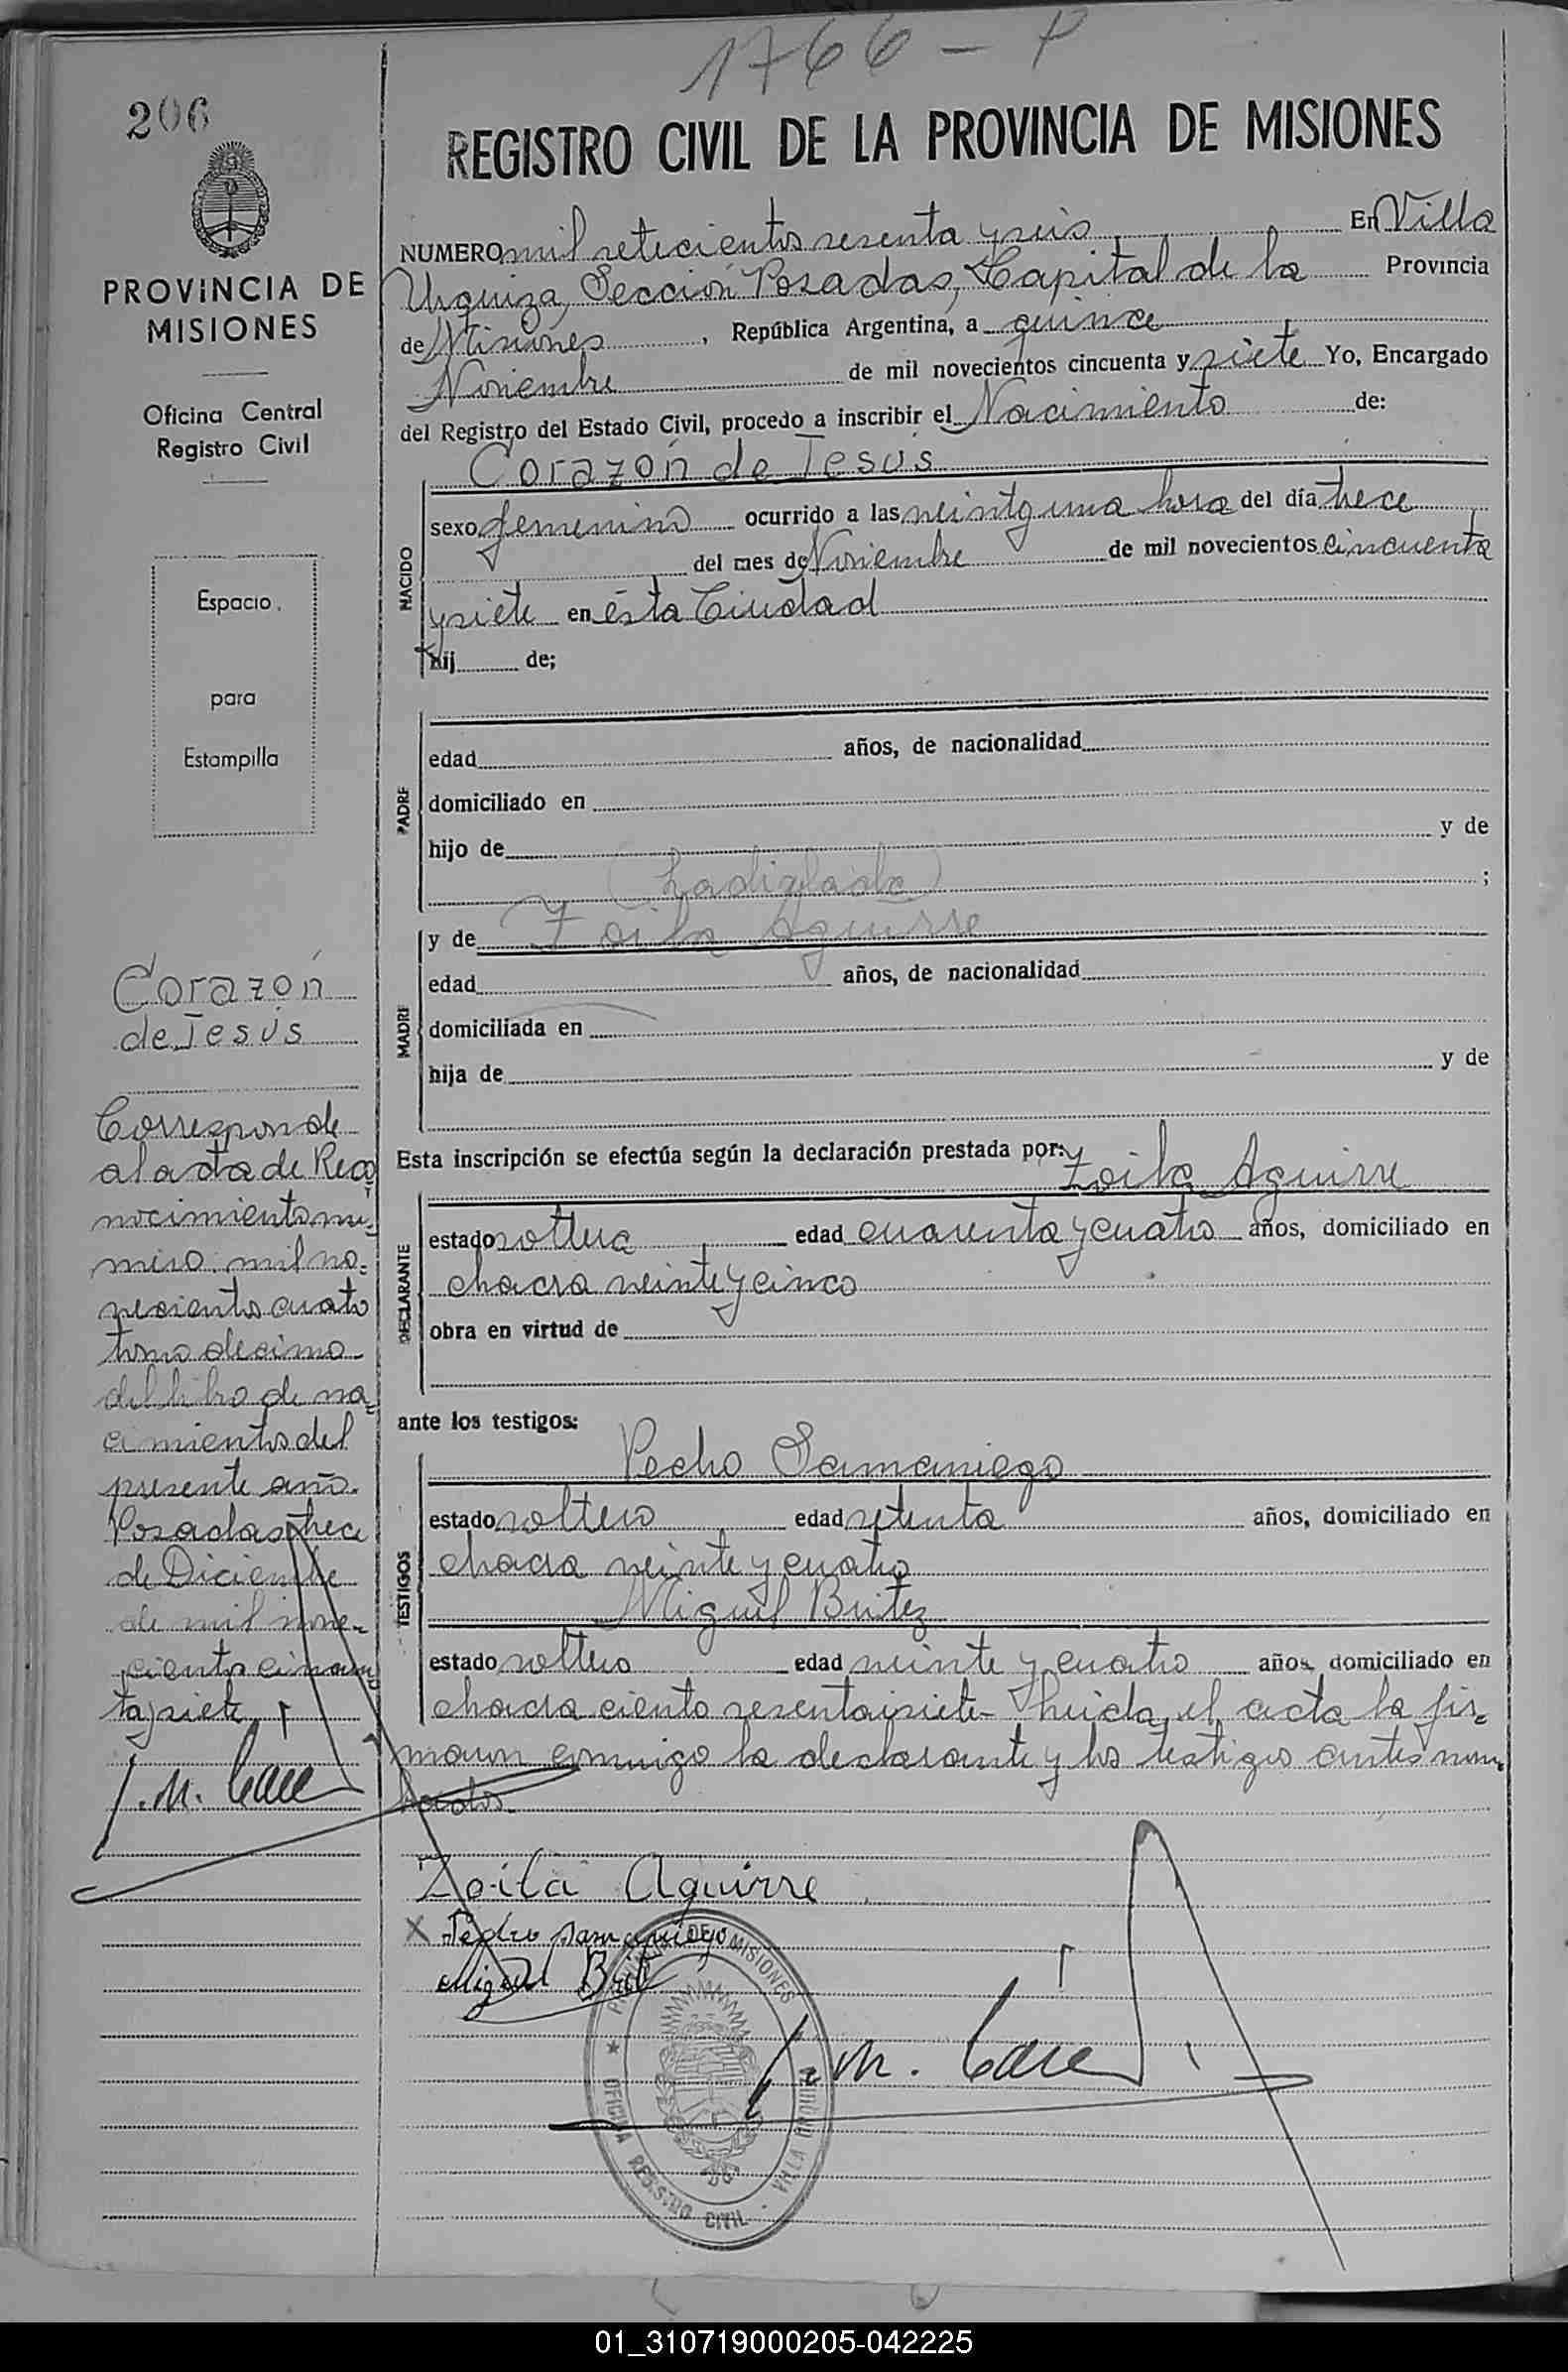 1766 - P
206
REGISTRO CIVIL DE LA PROVINCIA DE MISIONES
PROVINCIA DE
MISIONES
Oficina Central
Registro Civil
Espacio
para
Estampilla
NUMERO mil setecientos sesenta y seis En Villa
Urquiza, Sección Posadas, Capital de la Provincia
de Misiones, República Argentina, a quince
Noviembre de mil novecientos cincuenta y siete Yo, Encargado
del Registro del Estado Civil, procedo a inscribir el Nacimiento de:
Corazón de Jesús
NACIDO
sexo femenino ocurrido a las veintyuna hora del día trece
del mes de Noviembre de mil novecientos cincuenta
y siete en ésta Ciudad
hij de;
PADRE
edad años, de nacionalidad
domiciliado en
hijo de y de
;
MADRE
y de Zoila Aguirre
edad años, de nacionalidad
domiciliada en
hija de y de
Esta inscripción se efectúa según la declaración prestada por: Zoila Aguirre
DECLARANTE
estado soltera edad cuarenta y cuatro años, domiciliado en
chacra veinte y cinco
obra en virtud de
ante los testigos:
Pedro Samaniego
TESTIGOS
estado soltero edad setenta años, domiciliado en
chacra veinte y cuatro
Miguel Britez
estado soltero edad veinte y cuatro años, domiciliado en
chacra ciento sesentaisiete- Leida el acta la fir=
maron conmigo la declarante y los testigos antes nom=
brados.
Corazón
de Jesús
Corresponde
al acta de Reco
nocimiento nu=
mero mil no=
vecientos cuatro
tomo decimo
del libro de na=
cimientos del
presente año.
Posadas trece
de Diciembre
de mil nove=
cientos cincuen
ta y siete
Zoila Aguirre
X Pedro Samaniego
Miguel Brit
PROVINCIA DE MISIONES
OFICINA REGISTRO CIVIL - VILLA URQUIZA
01_310719000205-042225